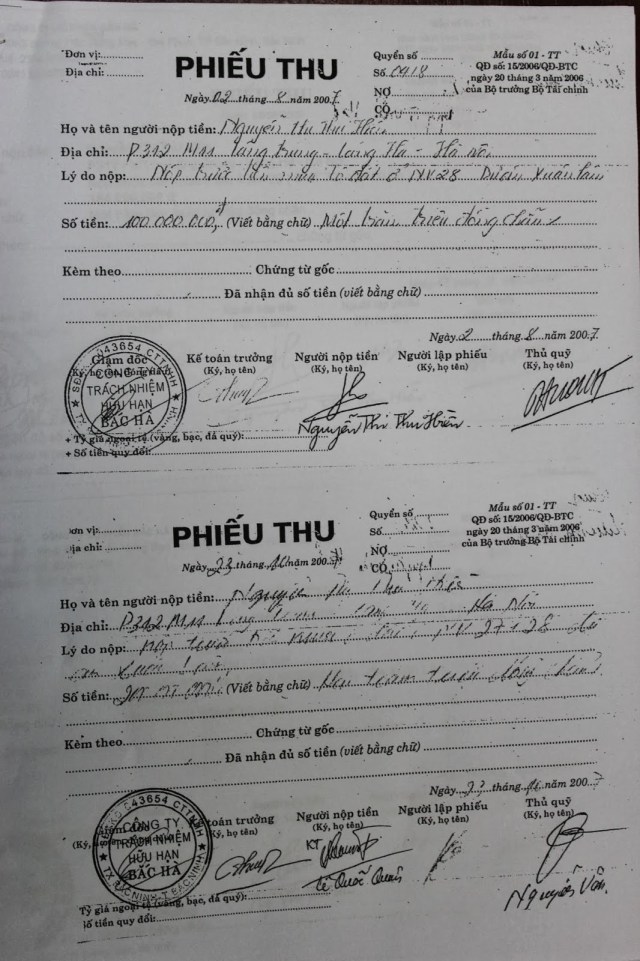 Đơn vị:
Địa chỉ:
PHIẾU THU
Ngày 02 tháng 8 năm 2007
Quyển số
Số 0918
NỢ
CÓ
Mẫu số 01 - TT
QĐ số: 15/2006/QĐ-BTC
ngày 20 tháng 3 năm 2006
của Bộ trưởng Bộ Tài chính
Họ và tên người nộp tiền: Nguyễn Thị Thu Hiền
Địa chỉ: P312 M11 Láng trung - Láng Hạ - Hà nội
Lý do nộp: Nộp trước tiền mua lô đất ở NV28 Dự án Xuân Lâm
Số tiền: 100 000 000,đ (Viết bằng chữ) Một trăm triệu đồng chẵn
Kèm theo Chứng từ gốc
Đã nhận đủ số tiền (viết bằng chữ)
Ngày 2 tháng 8 năm 2007
Giám đốc
(Ký, họ tên, đóng dấu)
Kế toán trưởng
(Ký, họ tên)
Người nộp tiền
(Ký, họ tên)
Người lập phiếu
(Ký, họ tên)
Thủ quỹ
(Ký, họ tên)
043654 CTTNHH
CÔNG TY
TRÁCH NHIỆM
HỮU HẠN
BẮC HÀ
Nguyễn Thị Thu Hiền
+ Tỷ giá ngoại tệ (vàng, bạc, đá quý):
+ Số tiền quy đổi:
ơn vị:
ịa chỉ:
PHIẾU THU
Ngày 23 tháng năm 2007
Quyển số
Số
NỢ
CÓ
Mẫu số 01 - TT
QĐ số: 15/2006/QĐ-BTC
ngày 20 tháng 3 năm 2006
của Bộ trưởng Bộ Tài chính
Họ và tên người nộp tiền: Nguyễn Thị Thu Hiền
Địa chỉ: P312 M11 Láng trung Láng Hạ Hà Nội
Lý do nộp: Nộp trước 27+28
Số tiền: (Viết bằng chữ) trăm triệu đồng chẵn
Kèm theo Chứng từ gốc
Đã nhận đủ số tiền (viết bằng chữ)
Ngày 23 tháng năm 2007
Giám đốc
(Ký,
Kế toán trưởng
(Ký, họ tên)
Người nộp tiền
(Ký, họ tên)
Người lập phiếu
(Ký, họ tên)
Thủ quỹ
(Ký, họ tên)
043654 CTTNHH
CÔNG TY
TRÁCH NHIỆM
HỮU HẠN
BẮC HÀ
TX BẮC NINH - T BẮC NINH
KT
Lê Quốc Quân
Nguyễn Vân
Tỷ giá ngoại tệ (vàng, bạc, đá quý):
số tiền quy đổi: